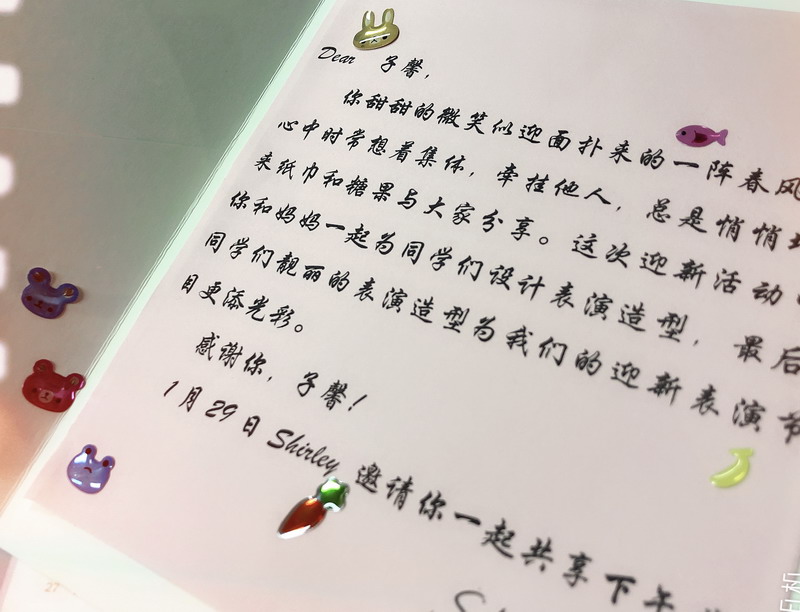 Dear 子馨，
你甜甜的微笑似迎面扑来的一阵春风
心中时常想着集体，牵挂他人，总是悄悄
来纸巾和糖果与大家分享。这次迎新活动
你和妈妈一起为同学们设计表演造型，最后
同学们靓丽的表演造型为我们的迎新表演节
目更添光彩。
感谢你，子馨！
1月29日 Shirley 邀请你一起共享下午
27